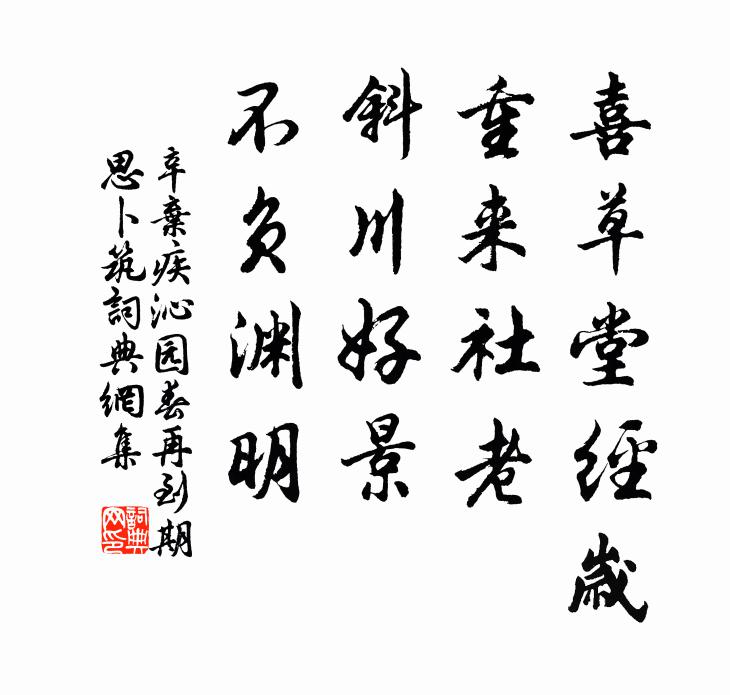 喜草堂經歲
重来社老
斜川好景
不負渊明
辛棄疾沁园春再到期
思卜筑詞典網集
詞典网印